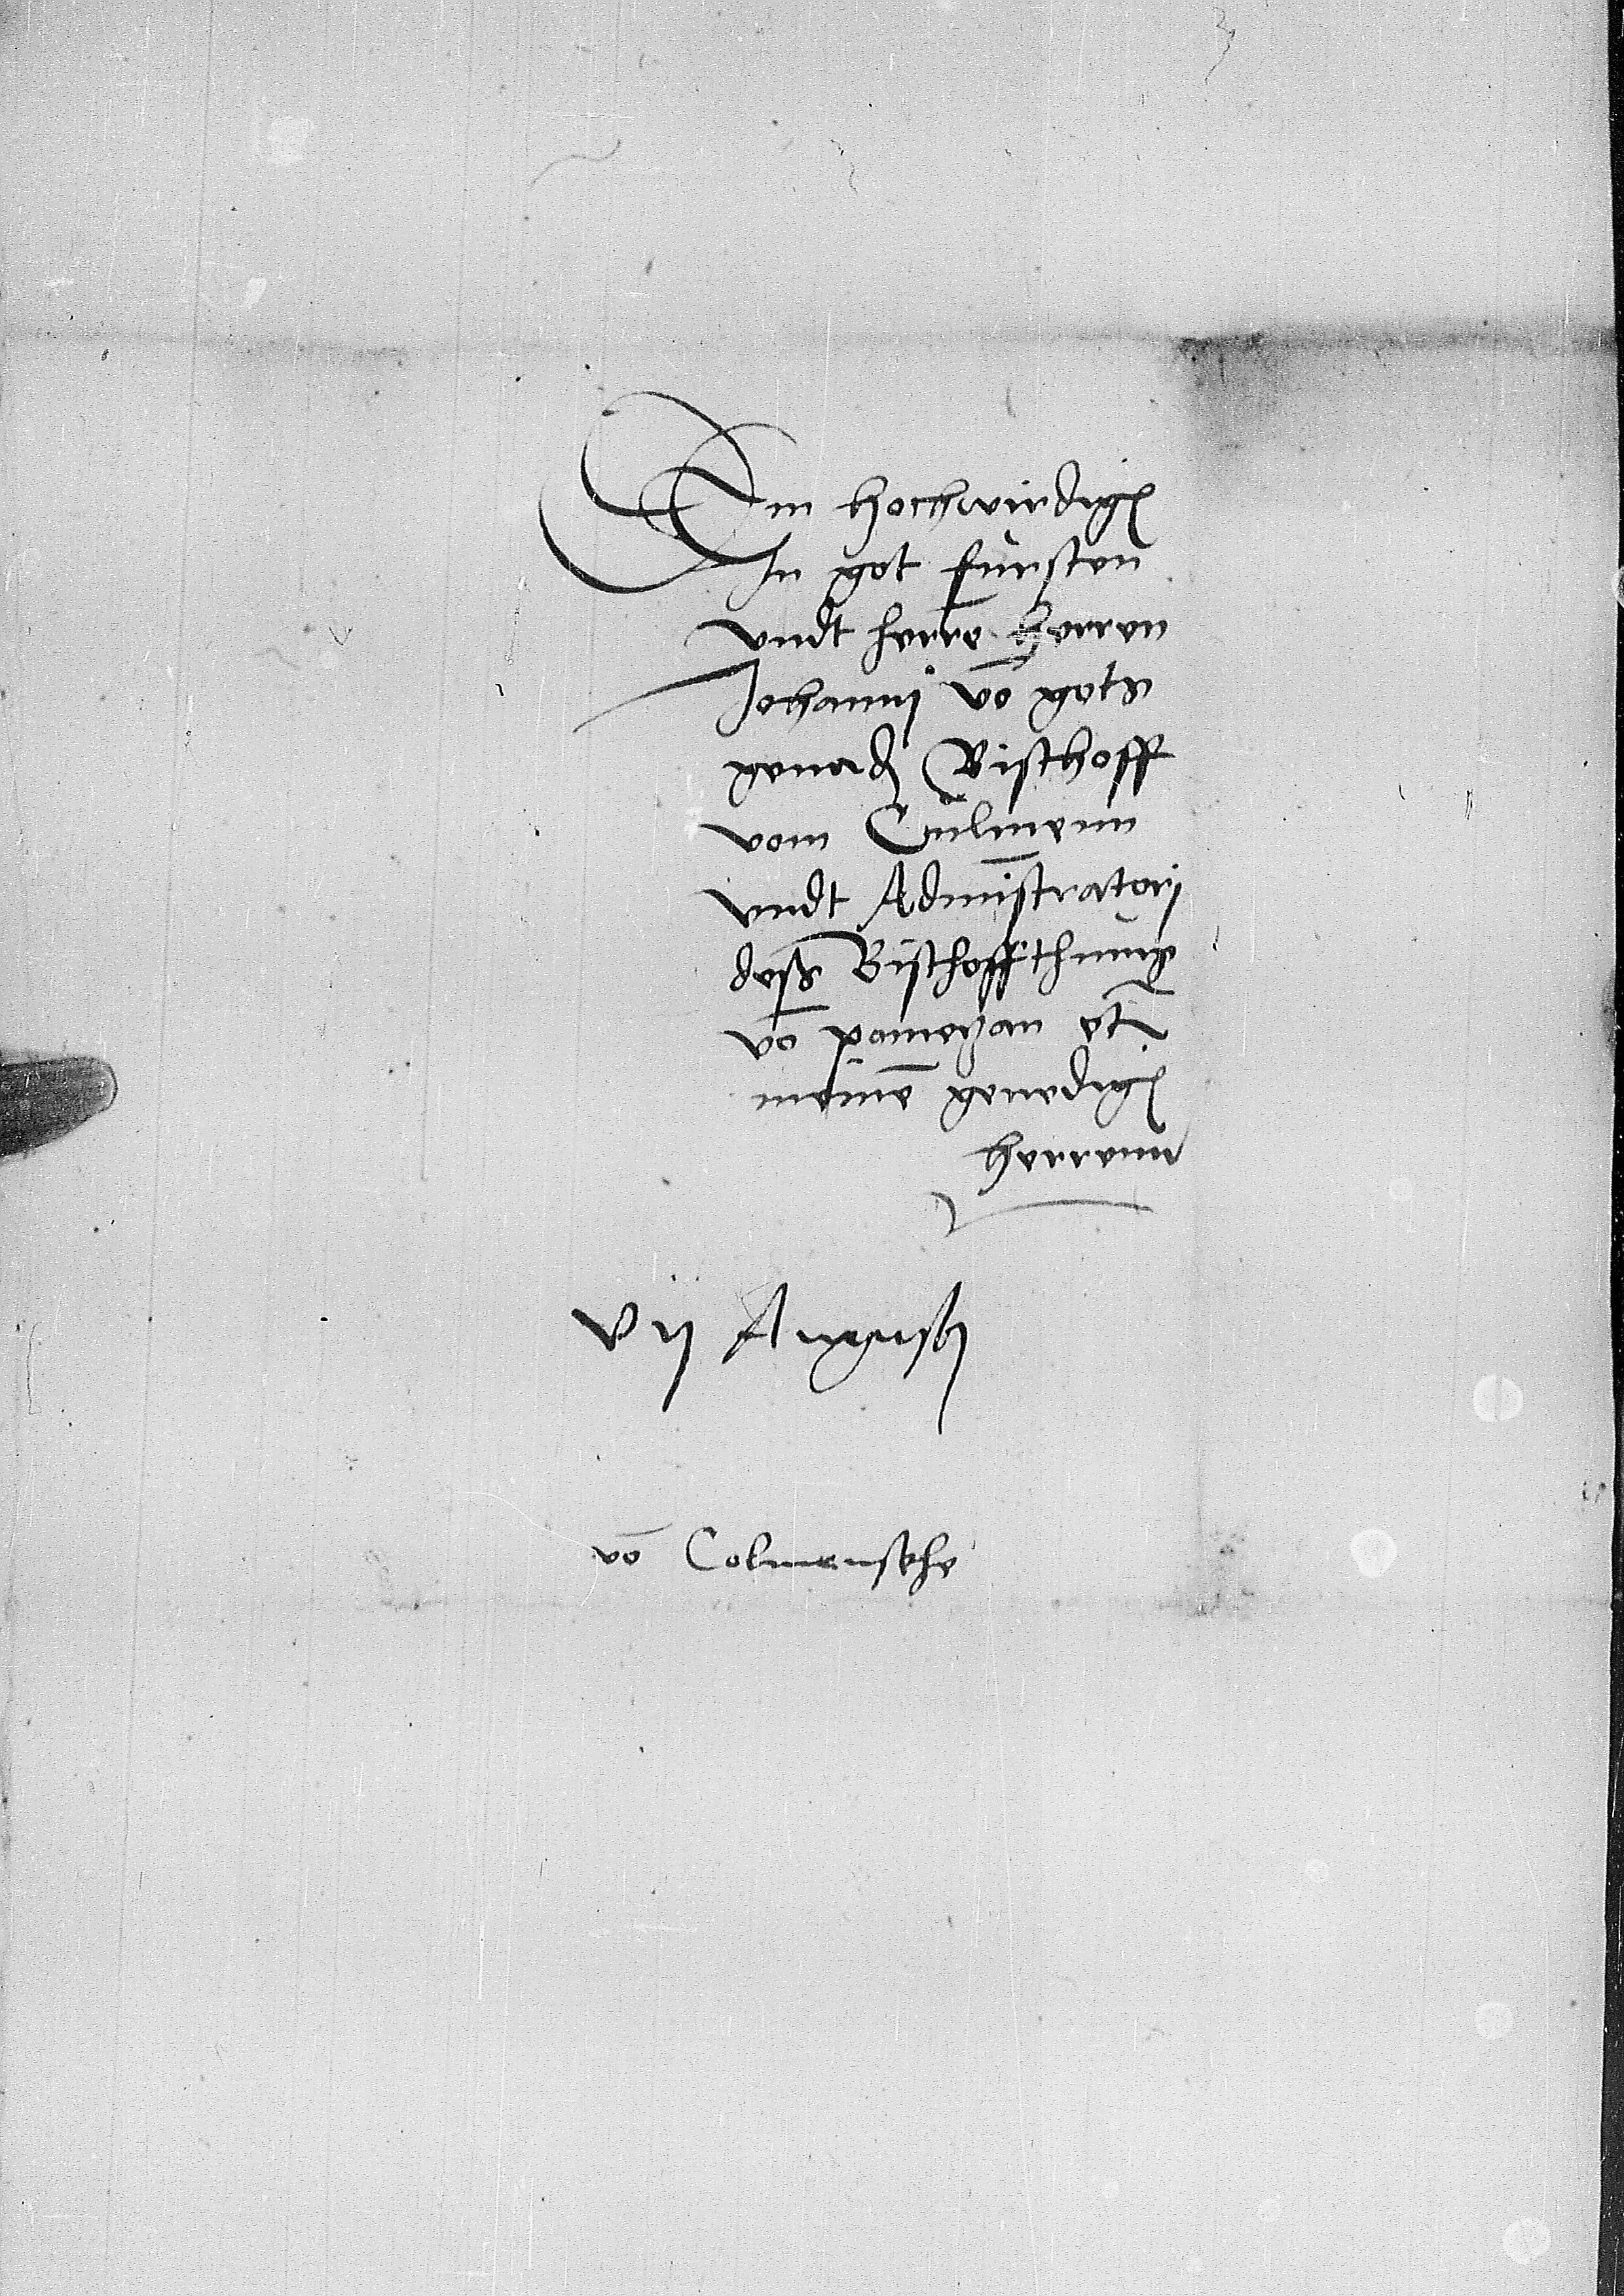 Dem hochwirdigen
In got fursten
vndt herre herren
Johanni vō gots
genaden Bischoff
vom Culmenn
vndt Administratori
dess Bischoffthumbs
vō pomezan etc
meinē genedigen
herrenn
vij Augusti
vō Colmensehe